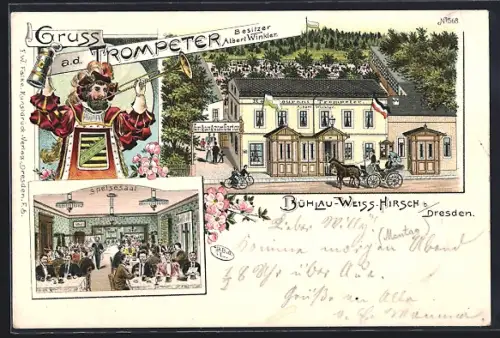 No 568
Gruss
a.d.
TROMPETER
Besitzer
Albert Winkler
Restaurant Trompeter
Speisesaal
BÜHLAU-WEISS-HIRSCH b/
Dresden.
Lieber Willy!
Komme morgen Abend
(Montag)
1/8 Uhr über Aue.
Grüße an Alle